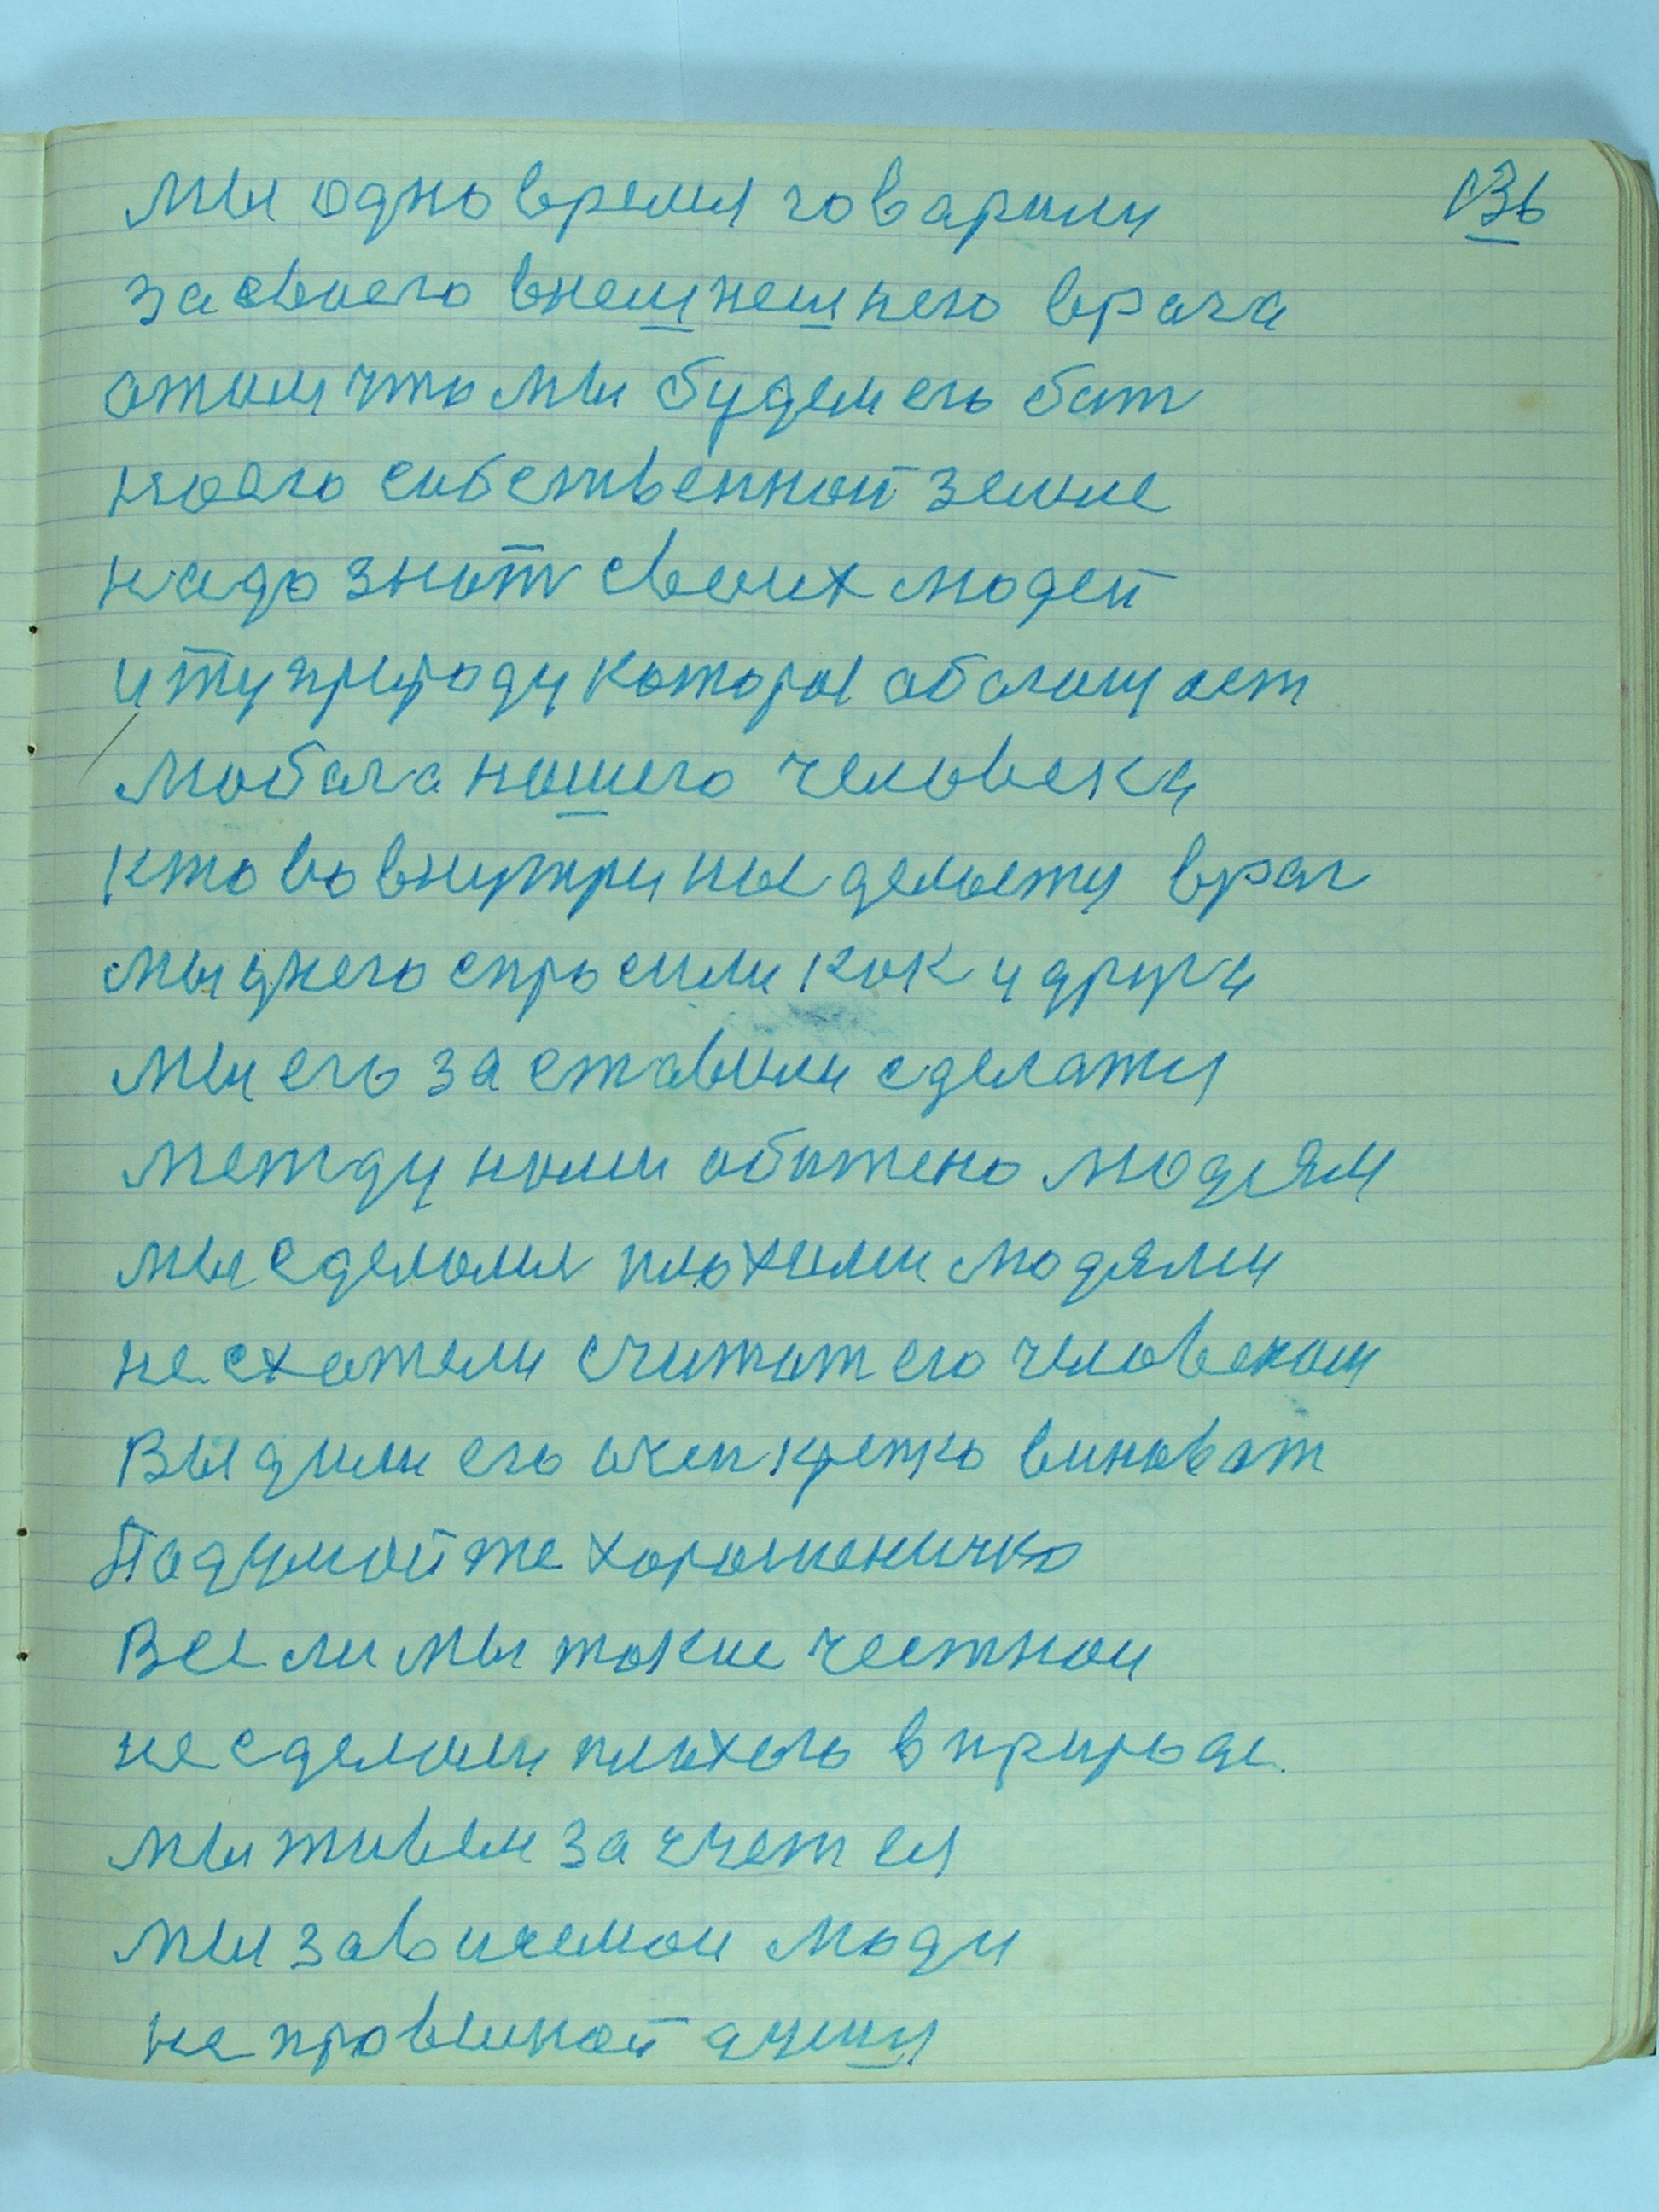 мы одно время говарили
136
за своего внешнешнего врага
отом что мы будем его бит
наего собственной земле
надо знат своих людей
и ту природу которы оболощает
любога нашего человека
кто вовнутри ны делаету враг
мы унего спросили как и друга
мы его заставили сделатся
между нами обижено людям
мы сделоли плохими людями
не схатели считат его человеком
Выдили его очен крепко виноват
Падумойте хорошеничко
Все ли мы такие честнои
не сделали плохого в природе.
мы живем за счет ея
мы зависемои люди
не провиной души